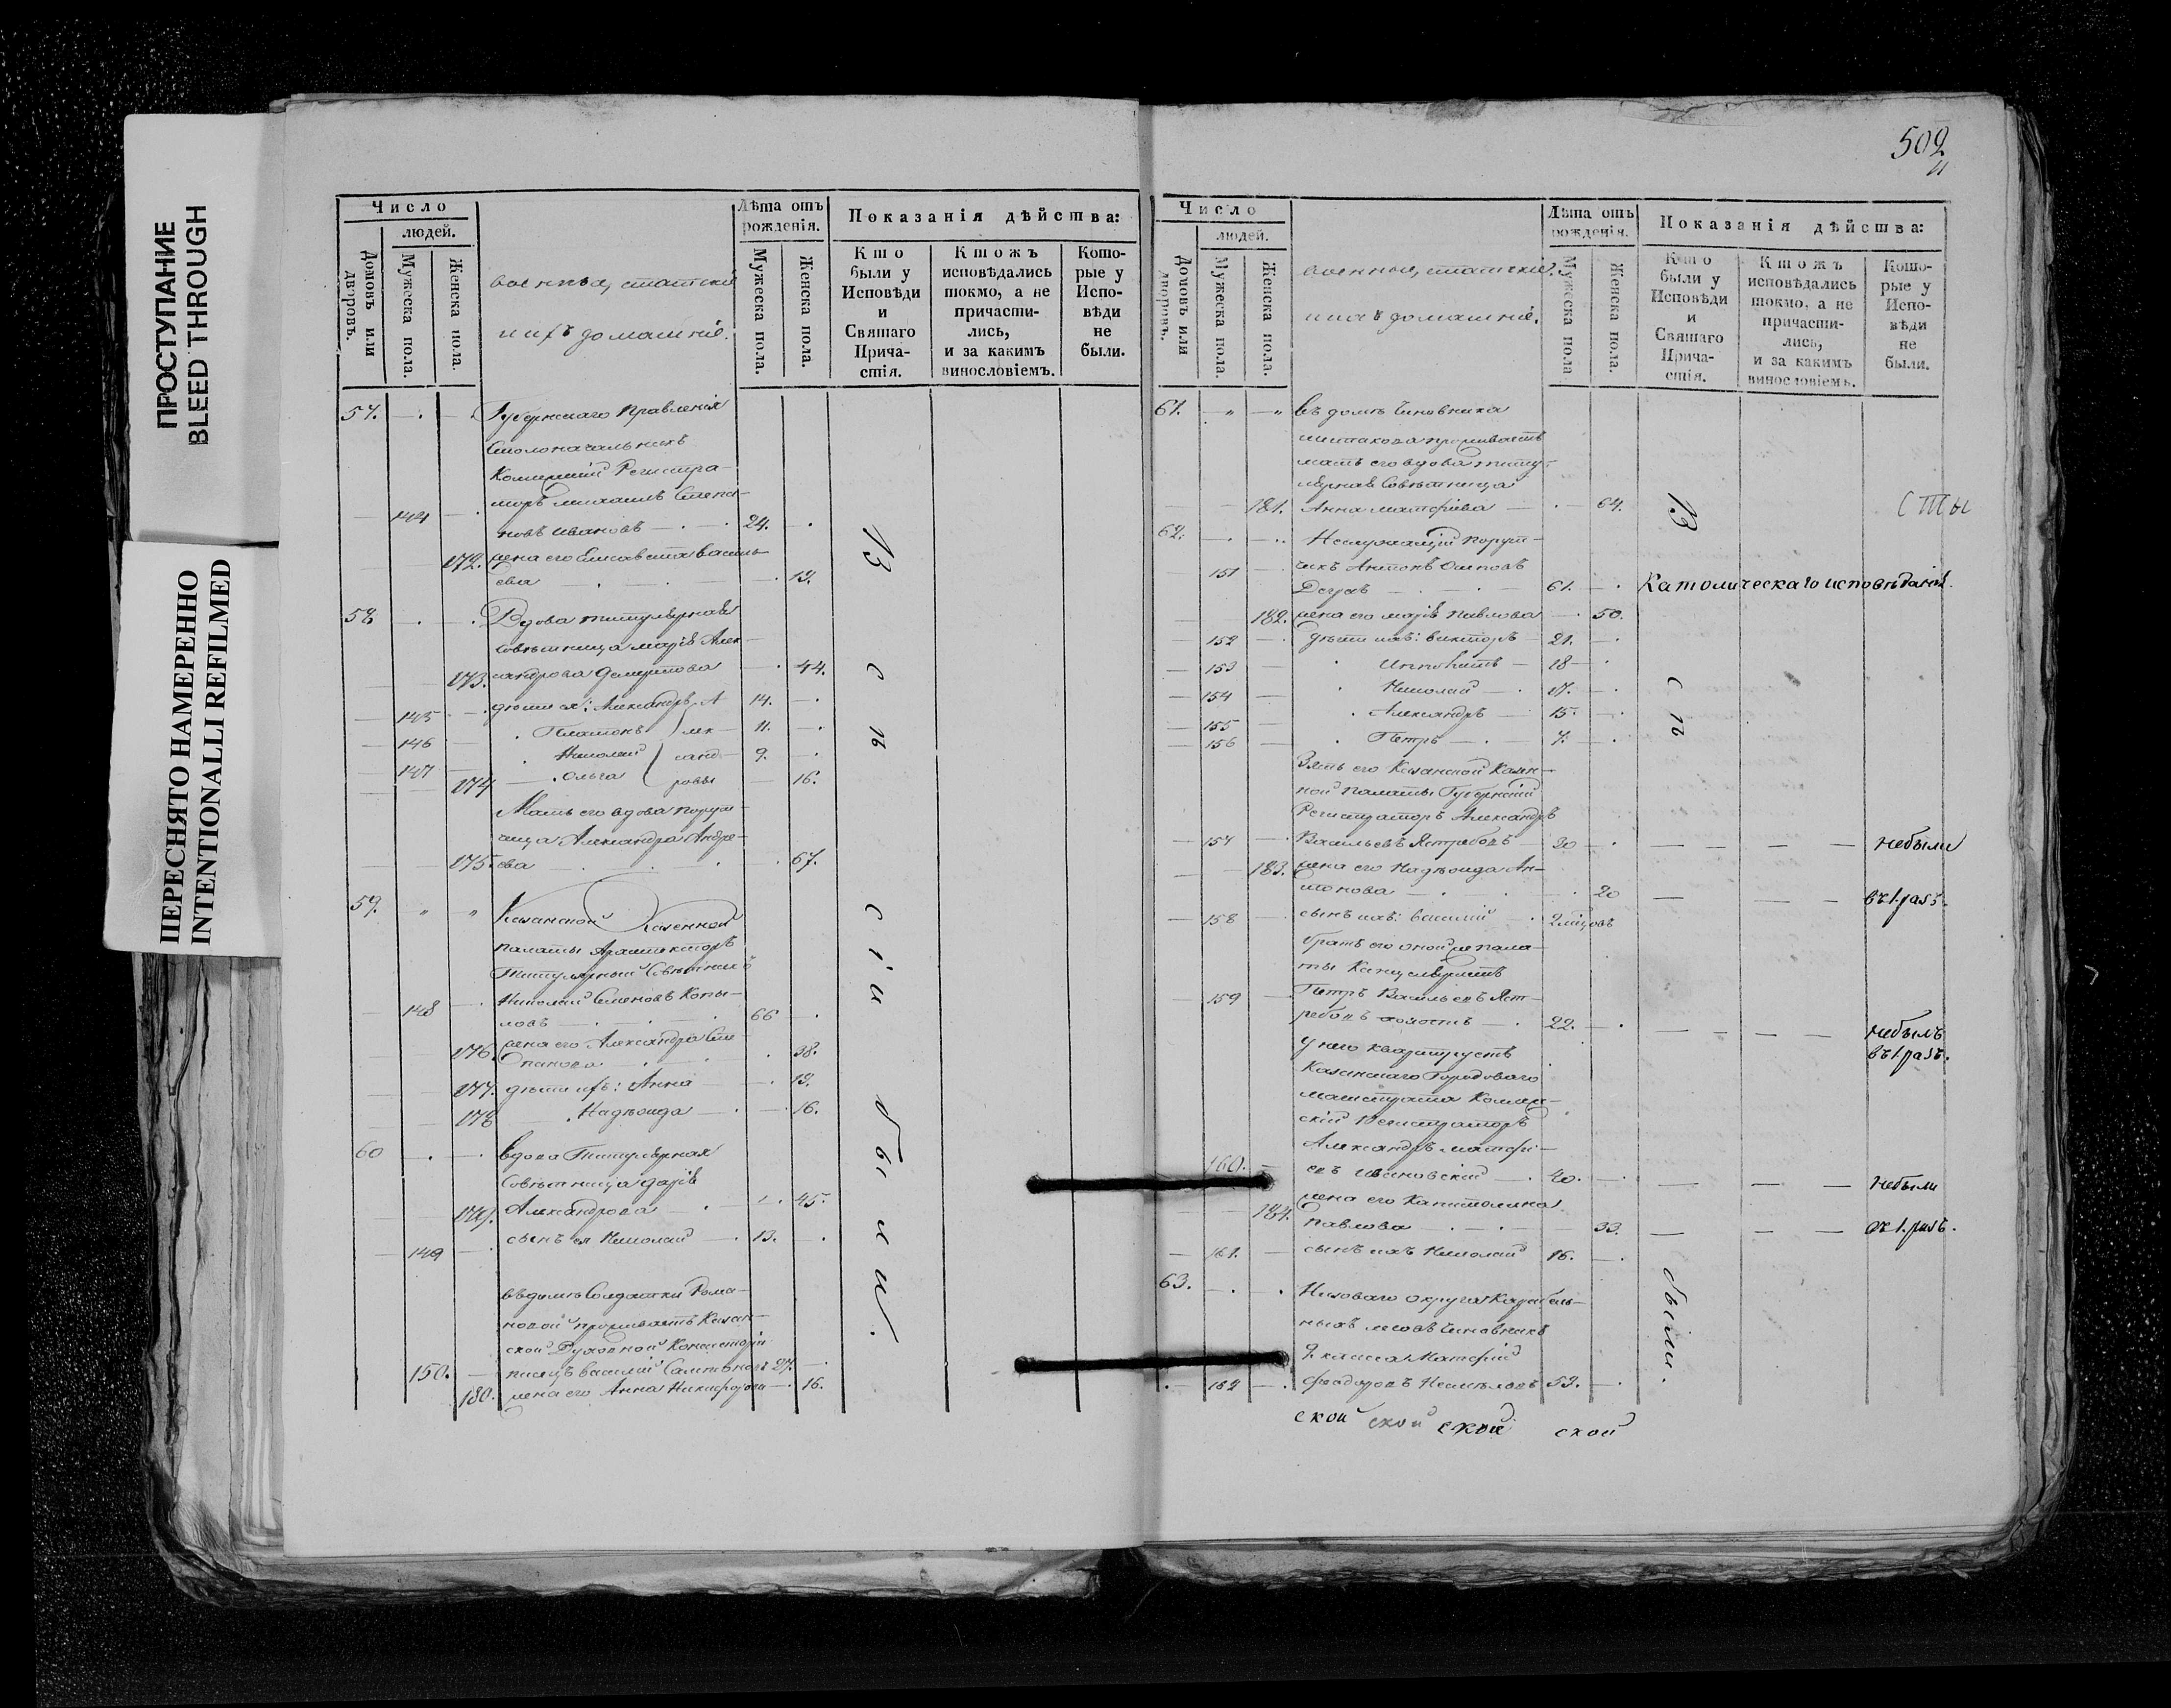 ПРОСТУПАНИЕ
BLEED THROUGH
ПЕРЕСНЯТО НАМЕРЕННО
INTENTIONALLI REFILMED
Число
людей.
Домовъ или дворовъ.
Мужеска пола.
Женска пола.
военныя, статскіе
и ихъ домашніе.
Лѣта отъ рожденія.
Мужеска пола.
Женска пола.
Показанія дѣйства:
Кто были у Исповѣди и Святаго Причастія.
Ктожъ исповѣдались токмо, а не причастились, и за какимъ винословіемъ.
Которые у Исповѣди не были.
57. Губернскаго Правленія
Столоначальникъ
Коллежскій Регистра-
торъ Михаилъ Степа-
144 новъ Ивановъ 24.
172. жена его Елисавета Василь-
ева 19.
58 Вдова титулярная
Совѣтница Марія Алек-
173. сандрова 44.
145 дѣти ея: Александръ А 14.
146 Платонъ лек- 11.
147 Николай санд- 9.
174 Ольга ровы 16.
Мать его вдова поруч-
чица Александра Андре-
175. ева 67.
59. Казанской Казенной
палаты Архитекторъ
Титулярный Совѣтникъ
148 Николай Семеновъ Копы-
ловъ 66
176. жена его Александра Сте-
панова 38.
177. дѣти ихъ: Анна 13.
178 Надѣжда 16.
60 вдова Титулярная
Совѣтница Дарія
179. Александрова 45.
149 сынъ ея Николай 13.
въ домѣ Солдатки Рома-
новой проживаетъ Казан-
ской Духовной Консисторіи
150. писецъ Василій 27.
180. жена его Анна Никифорова 16.
В
с
ѣ
с
і
и
б
ы
л
и.
502
Число
людей.
Домовъ или дворовъ.
Мужеска пола.
Женска пола.
военныя, статскіе,
и ихъ домашніе.
Лѣта отъ рожденія.
Мужеска пола
Женска пола.
Показанія дѣйства:
Кто были у Исповѣди и Святаго Причастія.
Ктожъ исповѣдались токмо, а не причастились, и за какимъ винословіемъ.
Которые у Исповѣди не были.
61. въ домѣ Чиновника
проживаетъ
мать его вдова титу-
лярная Совѣтница
181. Анна Матфіева 64.
В
62. Неслужащій поруч-
151 чикъ Антонъ Осиповъ
61. Католическаго исповѣданія.
182. жена его Марія Павлова 50.
152 дѣти ихъ: Викторъ 21.
153 Ипполитъ 18
154 Николай 17.
155 Александръ 15.
156 Петръ 7.
с
ѣ
Зять его Казанской Казен-
ной палаты Губернскій
Регистраторъ Александръ
157 Васильевъ Ястребовъ 20 небыли
183. жена его Надѣжда Ан-
тонова 20 въ 1. разъ.
158 сынъ ихъ: Василій 2 мцовъ
братъ его оной же пала-
ты Канцеляристъ
159 Петръ Васильевъ Яст-
ребовъ холостъ 22. небылъ
въ 1. разъ.
у него квартируетъ
Казанскаго Городоваго
магистрата Коллеж-
скій Регистраторъ
Александръ Матфі-
160. евъ Ивановскій 40. небыли
184. жена его Капитолина
Павлова 33. въ 1. разъ.
161. сынъ ихъ Николай 16.
63. Низоваго округа Корабель-
ныхъ лѣсовъ Чиновникъ
9 класса Матфій
162 Феодоровъ 53.
были.
ской ской ской ской